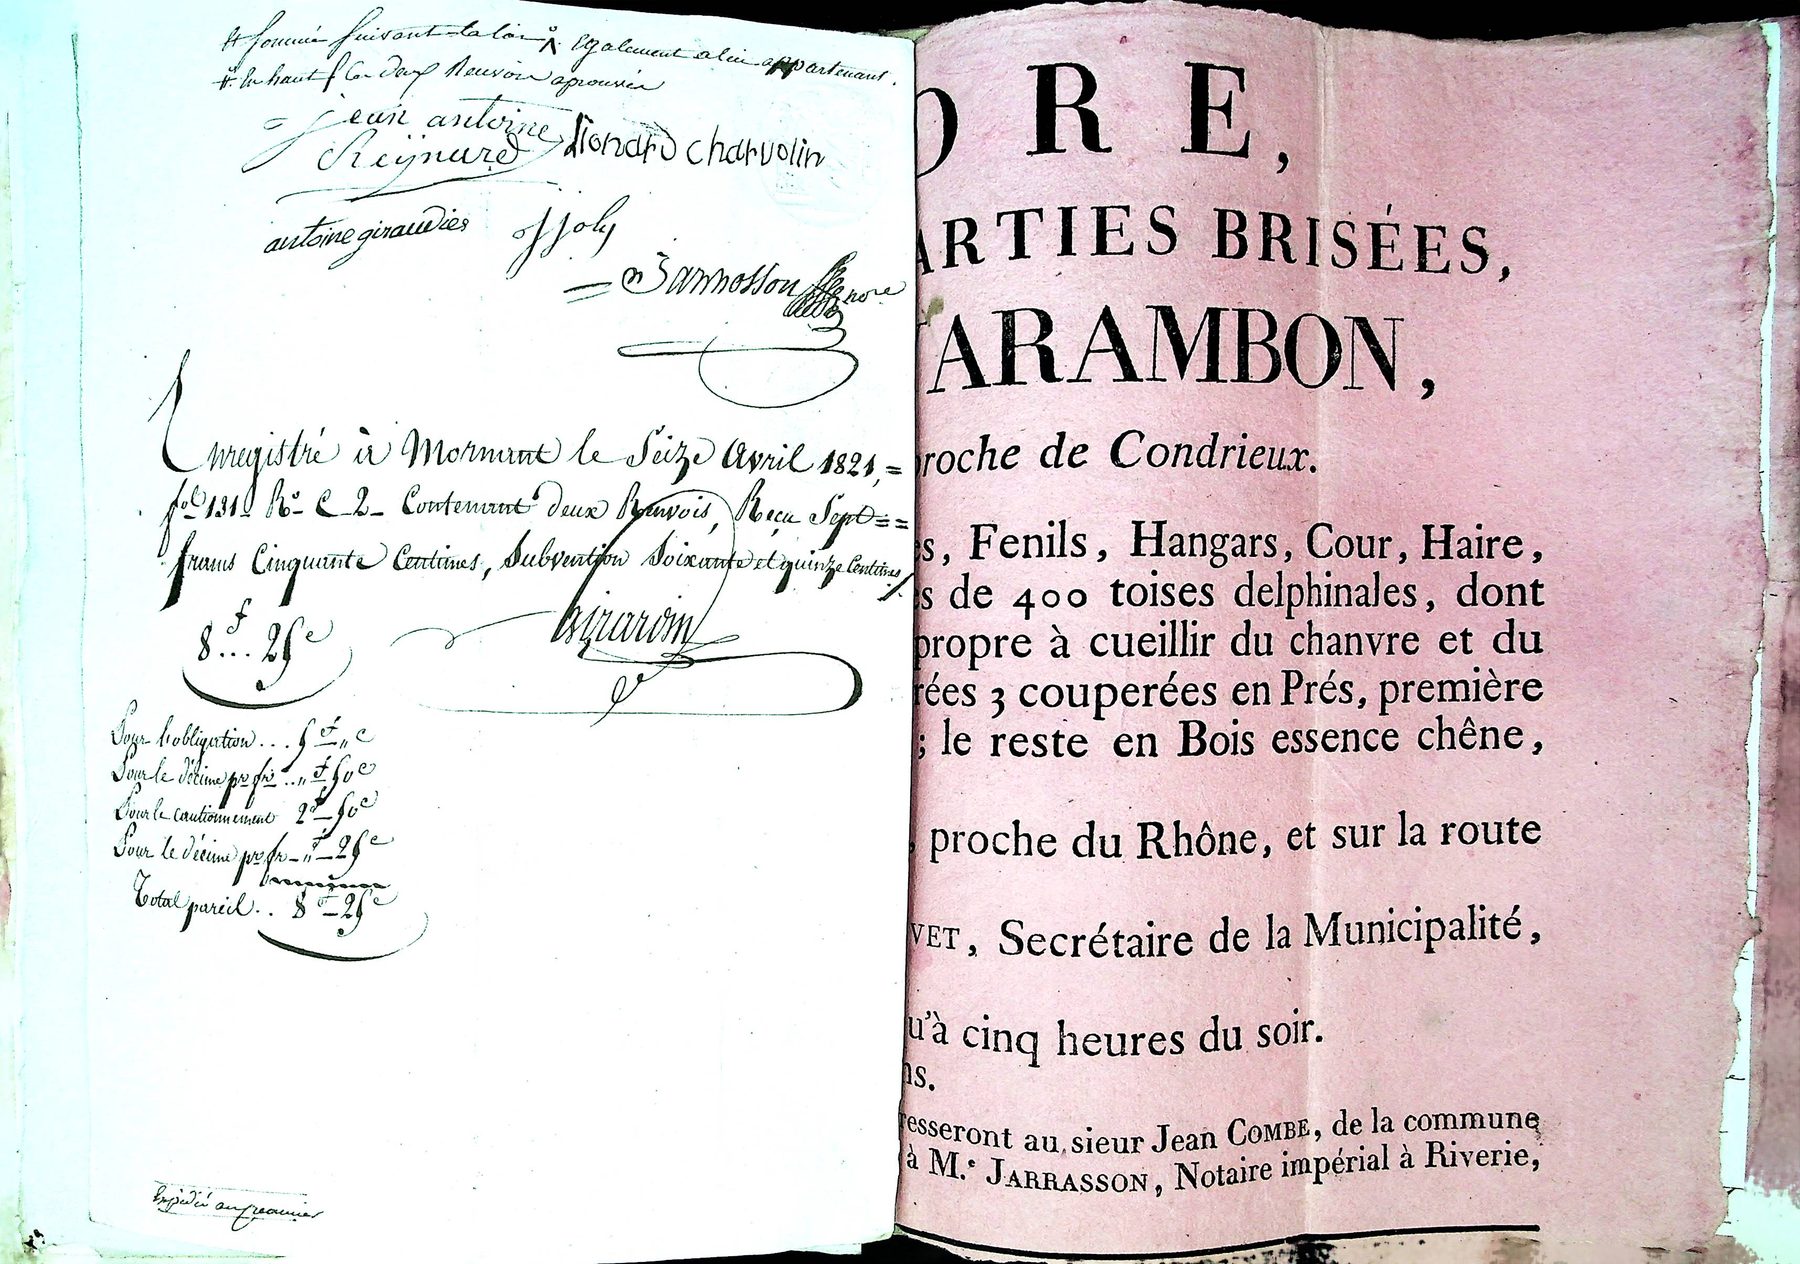 # sommé suivant la loi également a lui appartenant.
# En haut Ces deux Renvois aprouvés
jean antoine
Reynard Lionard charvolin
antoine giraudies jjoly
Jarrosson nore
Enregistré à Mornant le Seize Avril 1821, =
fol 131 Ro C 2 Contenant deux Renvois, Reçu Sept ==
francs Cinquante Centimes, Subvention Soixante et quinze Centimes
Girardin
8f... 25c
Pour l'obligation ... 5f „c
Pour le décime pr fr ... „f 50c
Pour le cautionnement 2f 50c
Pour le décime pr fr „f 25c
Total pareil .. 8f 25c
Expédié au créancier
ORE,
ARTIES BRISÉES,
VARAMBON,
proche de Condrieux.
es, Fenils, Hangars, Cour, Haire,
es de 400 toises delphinales, dont
propre à cueillir du chanvre et du
rées 3 couperées en Prés, première
; le reste en Bois essence chêne,
, proche du Rhône, et sur la route
VET, Secrétaire de la Municipalité,
u'à cinq heures du soir.
ns.
resseront au sieur Jean COMBE, de la commune
à M.e JARRASSON, Notaire impérial à Riverie,